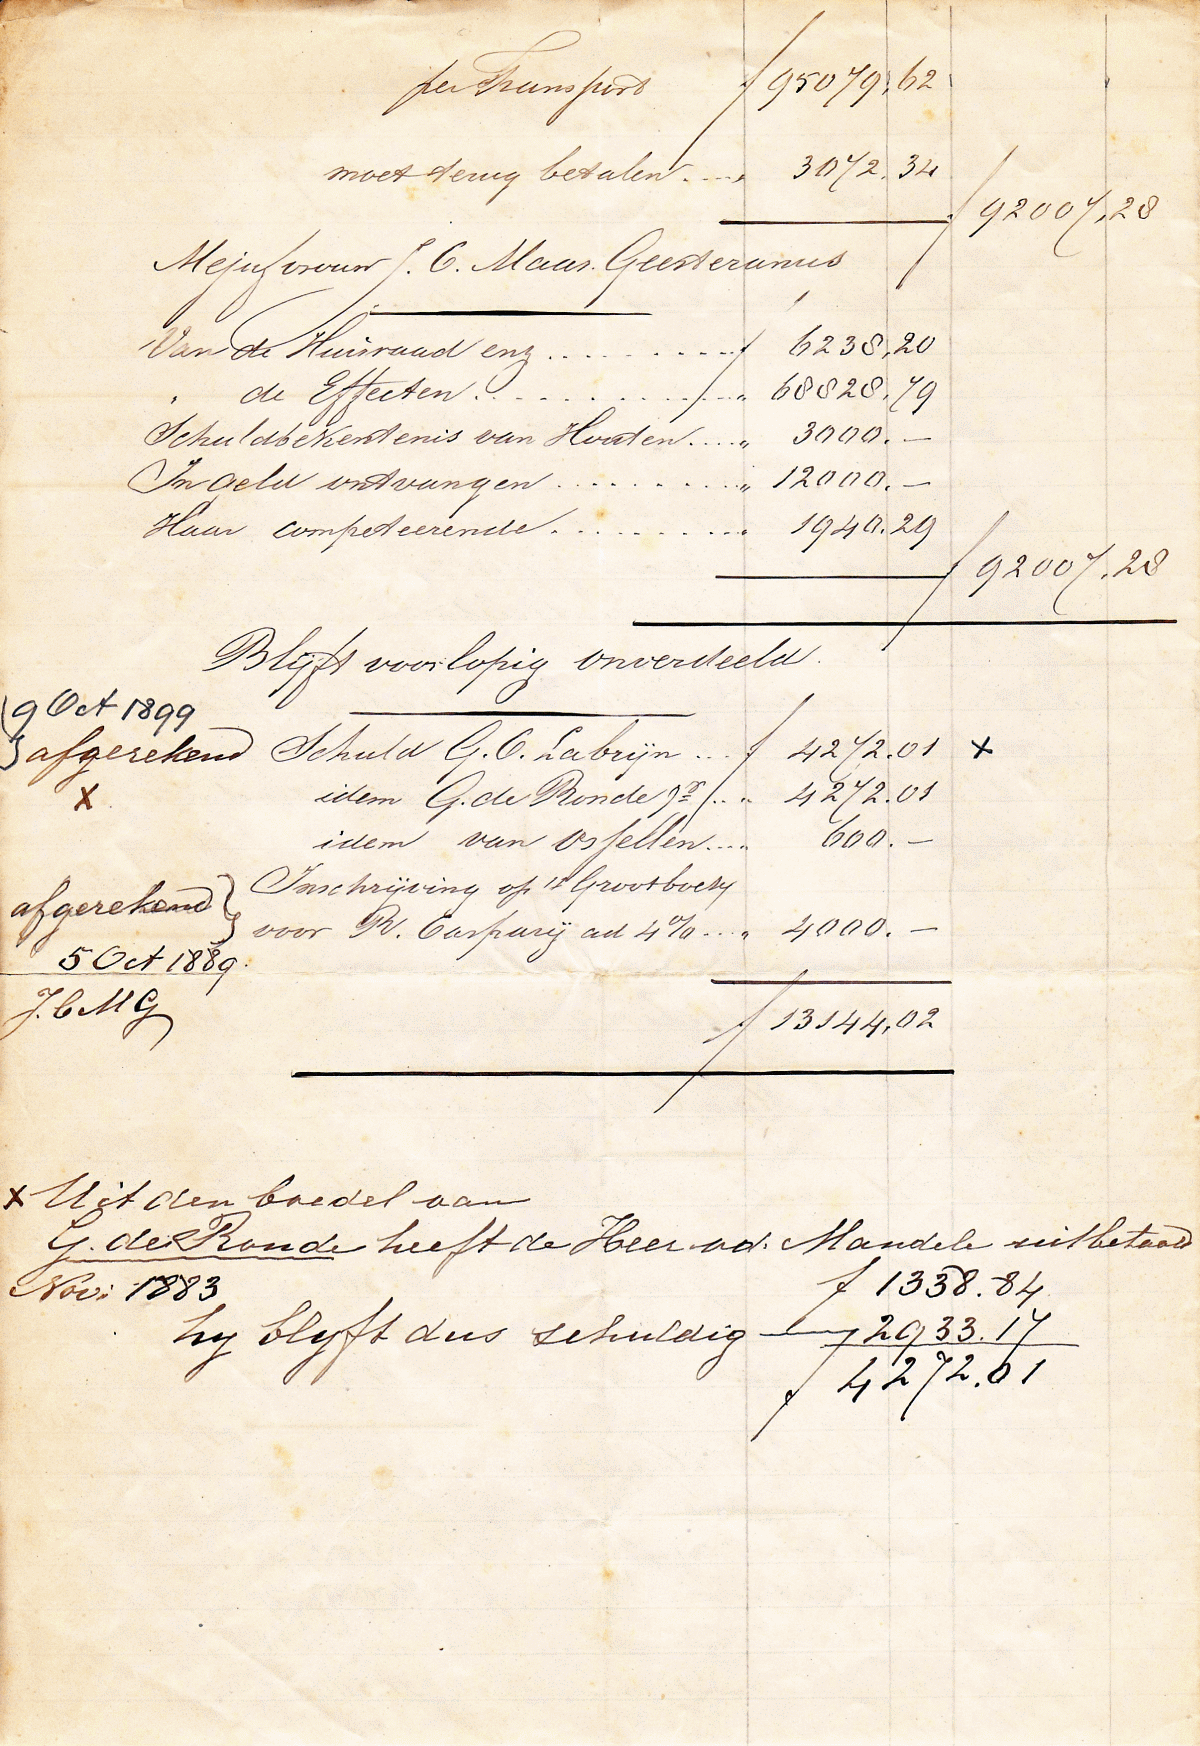 per Transport f 95079,62
moet terug betalen .... „ 3072.34
f 92007,28
Mejufvrouw J. C. Maas Geesteranus
Van de Huisraad enz .......... f 6238,20
„ de Effecten .......... „ 68828,79
Schuldbekentenis van Houten .... „ 3000.—
In geld ontvangen .......... „ 12000.—
Haar competeerende .......... „ 1940.29
f 92007,28
Blijft voorlopig onverdeeld.
9 Oct 1899
afgerekend Schuld G. C. Labrijn ... f 4272.01 x
x idem G. de Ronde Jr ... „ 4272.01
idem van Osselen .... „ 600.—
Inschrijving op 't Grootboek
afgerekend voor R. Casparij ad 4% ... „ 4000.—
5 Oct 1889.
J. C M G
f 13144,02
x Uit den boedel van
G. de Ronde heeft de Heer v.d. Mandele uitbetaald
Nov: 1883 f 1338.84
hy blyft dus schuldig — 2933.17
f 4272.01